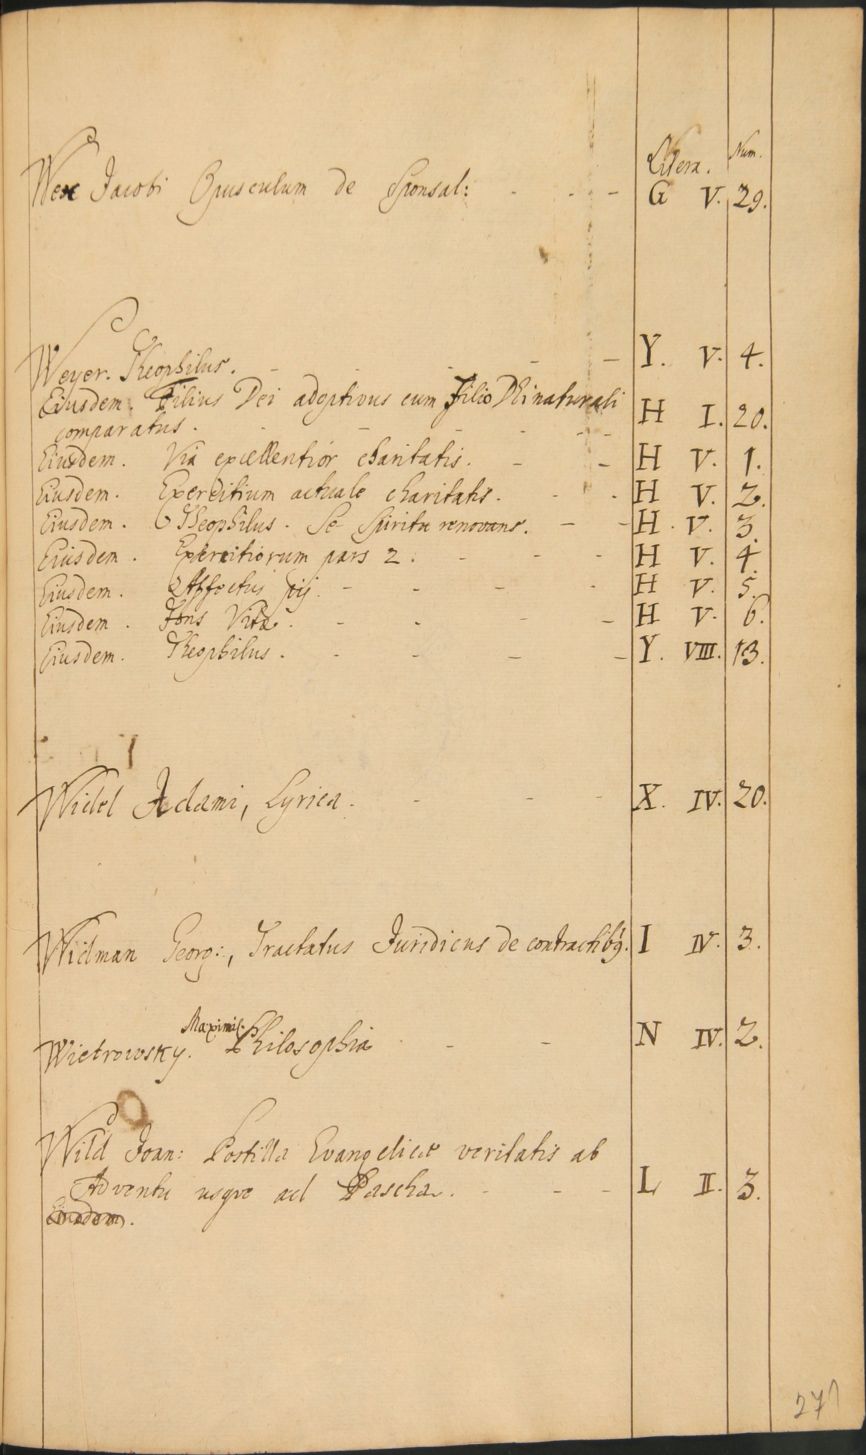 Litera. Num.
Wex Jacobi Opusculum de Sponsal: - - - G V. 29.
Weyer. Theophilus. - - - - Y. V. 4.
Eiusdem. Filius Dei adoptivus cum Filio Dei naturali
comparatus. - - - - H I. 20.
Eiusdem. Via excellentior charitatis. - - H V. 1.
Eiusdem. Exercitium actuale charitatis. - - H V. 2.
Eiusdem. Theophilus. Se Spiritu renovans. - - H. V. 3.
Eiusdem. Exercitiorum pars 2. - - - H V. 4.
Eiusdem. Affectus pij. - - - - H V. 5.
Eiusdem. Fons Vitæ. - - - - H V. 6.
Eiusdem. Theophilus. - - - - Y. VIII. 13.
Widl Adami, Lyrica. - - - X. IV. 20.
Widman Georg:, Tractatus Juridicus de contractibq. I IV. 3.
Maximil.
Wietrowsky. Philosophia - - - N IV. 2.
Wild Joan: Postilla Evangelicæ veritatis ab
Adventu usque ad Pascha. - - - L II. 3.
Eiusdem.
277